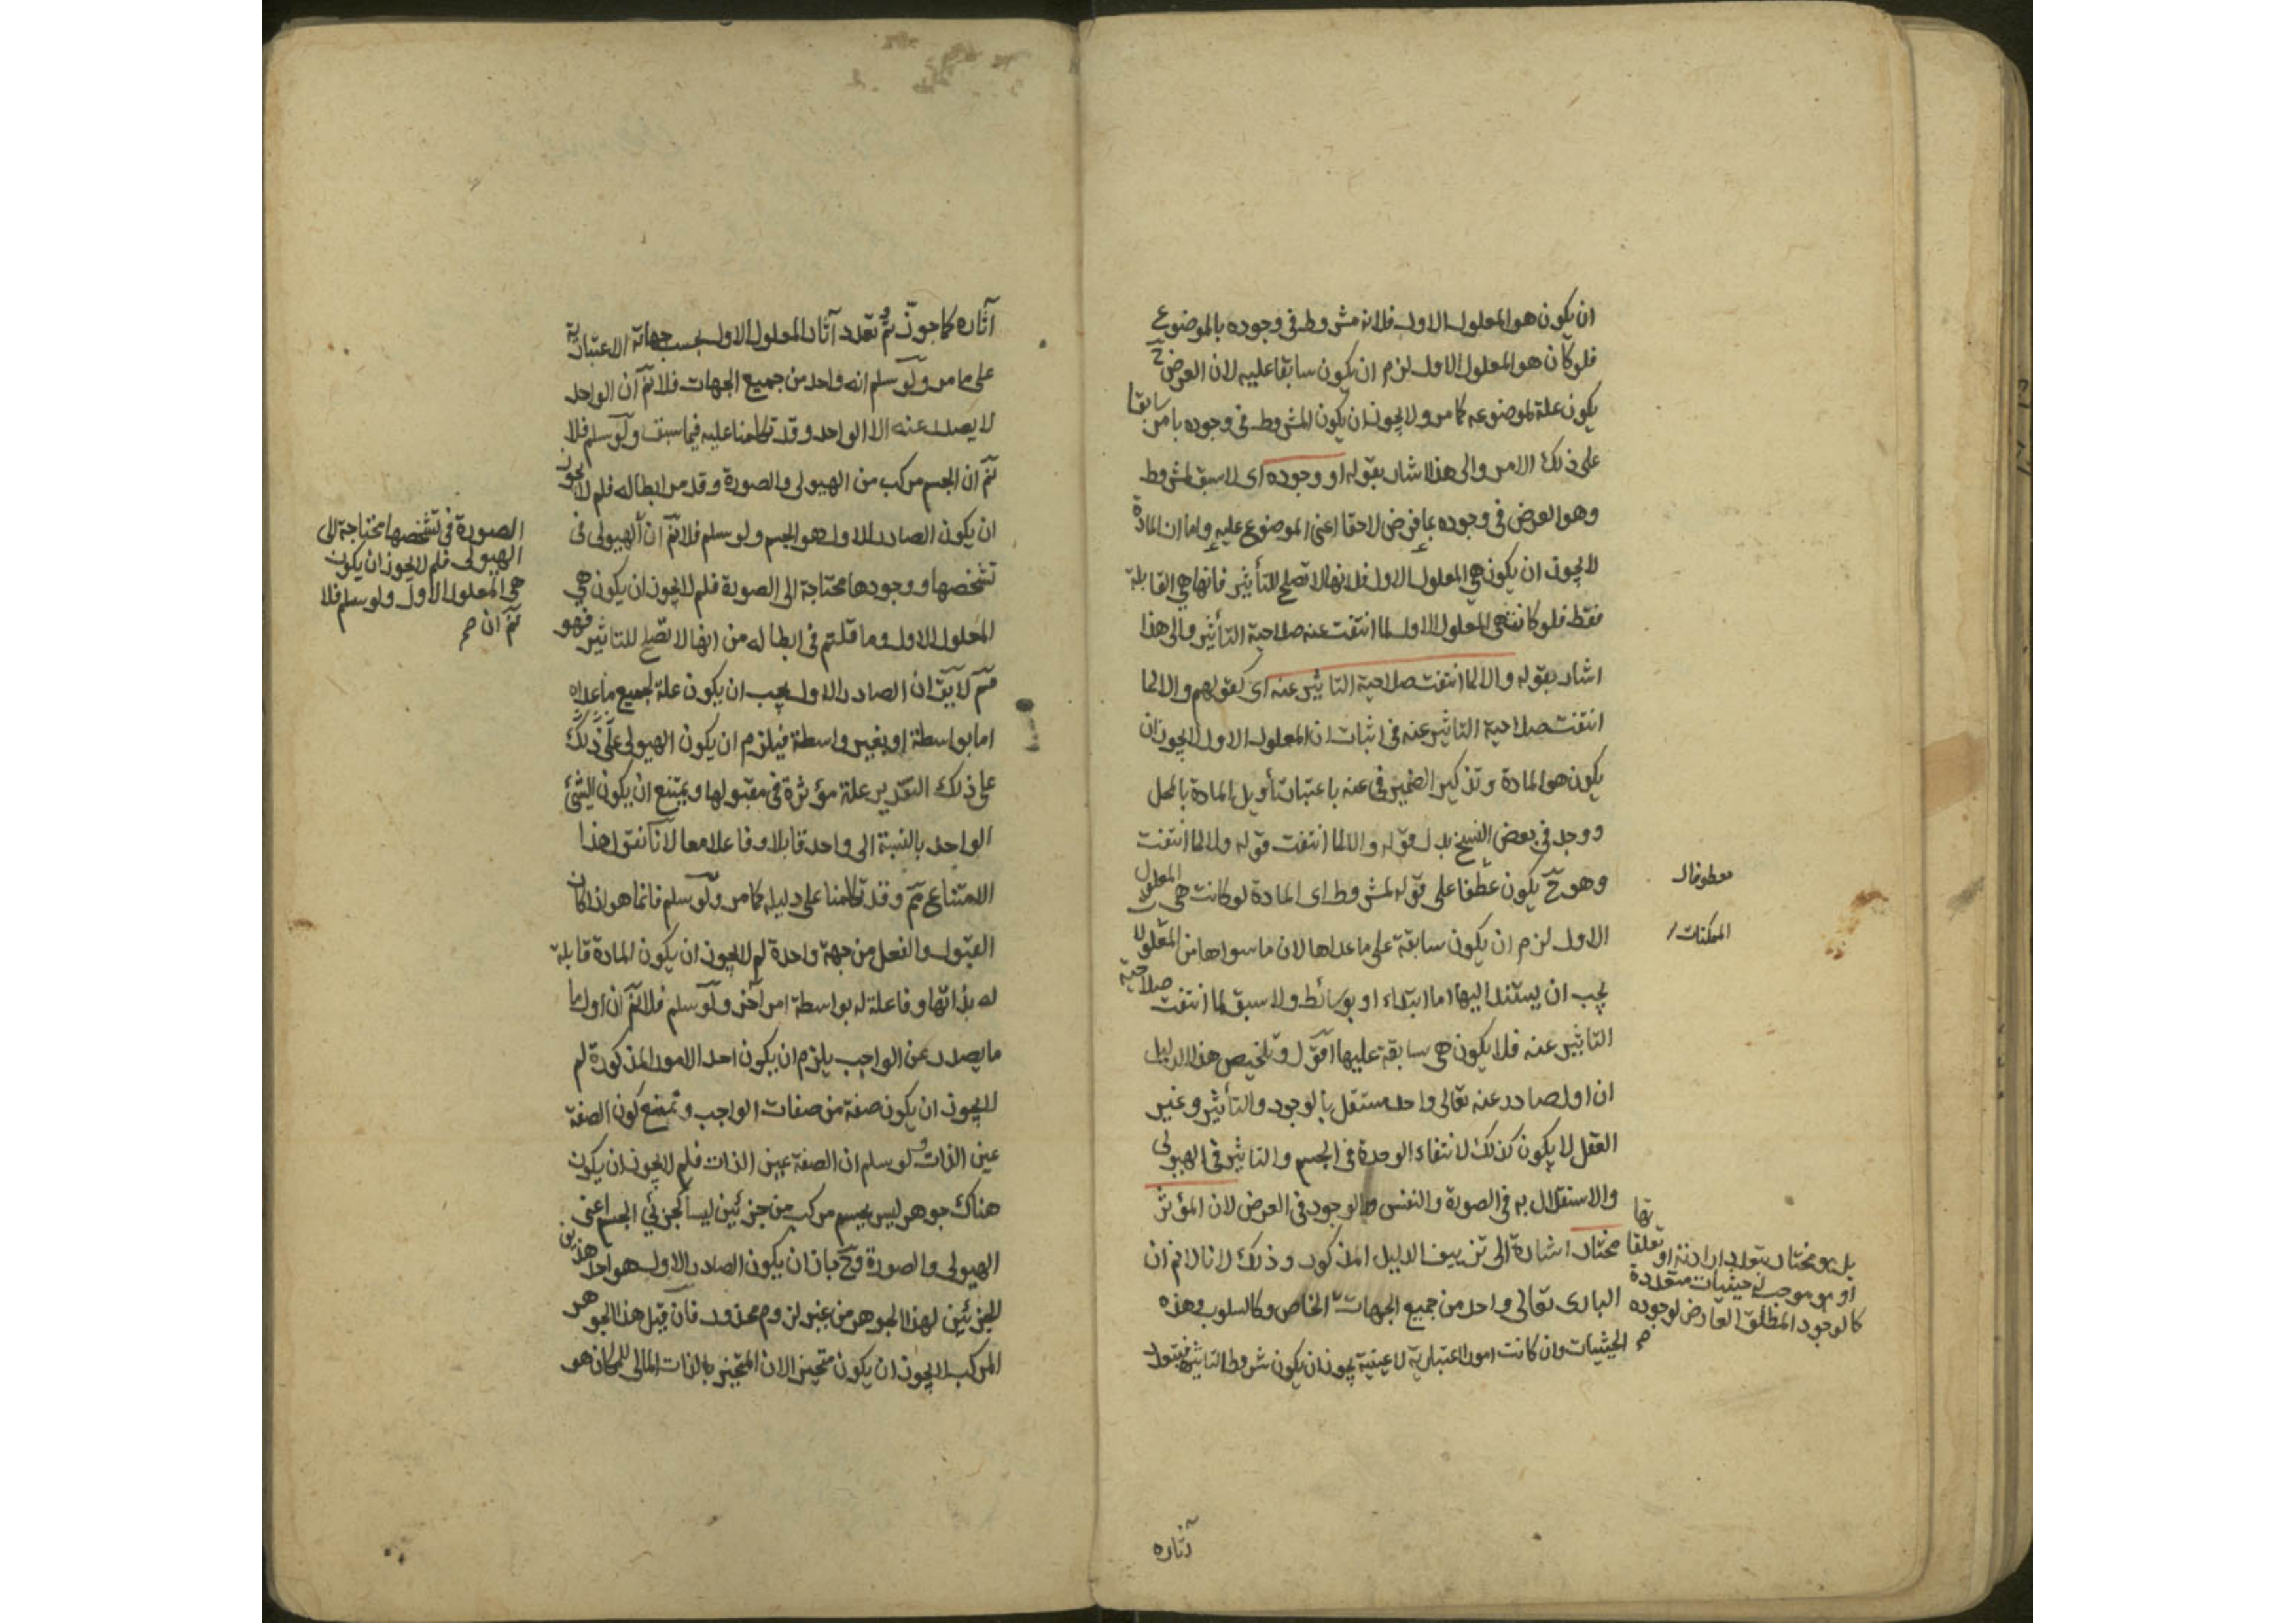 ان يكون هو المعلول الاول فلانه مشروط فى وجوده بالموضوع
فلو كان هو المعلول الاول لزم ان يكون سابقا عليه لان العرض ح
يكون علة لموضوعه كما مر ولا يجوز ان يكون المشروط فى وجوده بامر سابقا
على ذلك الامر والى هذا اشار بقوله او وجوده اى لا سبق لمشروط
وهو العرض فى وجوده بما فرض لاحقا اعنى الموضوع عليه واما ان المادة
لا يجوز ان يكون هى المعلول الاول فلانها لا تصلح للتأثير فانها هى القابلة
فقط فلو كانت هى المعلول الاول لما انتفت عنه صلاحية التأثير والى هذا
اشار بقوله والا لما انتفت صلاحية التاثير عنه اى كقولهم والا لما
انتفت صلاحية التاثير عنه فى اثبات ان المعلول الاول لا يجوز ان
يكون هو المادة وتذكير الضمير فى عنه باعتبار تأويل المادة بالمحل
ووجد فى بعض النسخ بدل قوله والا لما انتفت قوله ولا لما انتفت
وهو ح يكون عطفا على قوله لمشروط اى المادة لو كانت هى المعلول
معطوفا لـ
الاول لزم ان يكون سابقة على ماعداها لان ما سواها من المعلولات
الممكنات
يجب ان يستند اليها اما ابتداء او بوسائط ولا سبق لما انتفت صلاحية
التاثير عنه فلا يكون هى سابقة عليها اقول وتلخيص هذا الدليل
ان اول صادر عنه تعالى واحد مستقل بالوجود والتأثير وغير
العقل لا يكون كذلك لانتفاء الوحدة فى الجسم والتاثير فى الهيولى
والاستقلال به فى الصورة والنفس والوجود فى العرض لان المؤثر
مختار اشارة الى تزييف الدليل المذكور وذلك لانا لا نم ان
البارى تعالى واحد من جميع الجهات الخاص وكالسلوب وهذه
الحيثيات وان كانت امورا اعتبارية لا عينية يجوز ان يكون شروط التاثير فيتعدد
بل هو مختار يتعدد ارادته او تعلقاتها
او هو موجب له حيثيات متعددة
كالوجود المطلق العارض لوجوده
صح
آثاره
آثاره كما جوزتم تعدد آثار المعلول الاول بحسب جهاته الاعتبارية
على ما مر ولو سلم انه واحد من جميع الجهات فلا نم ان الواحد
لا يصدر عنه الا الواحد وقد تكلمنا عليه فيما سبق ولو سلم فلا
نم ان الجسم مركب من الهيولى والصورة وقد مر ابطاله فلم لا يجوز
ان يكون الصادر الاول هو الجسم ولو سلم فلا نم ان الهيولى فى
تشخصها ووجودها محتاجة الى الصورة فلم لا يجوز ان يكون هى
المعلول الاول وما قلتم فى ابطاله من انها لا تصلح للتاثير فهو
مم لا يق ان الصادر الاول يجب ان يكون علة لجميع ماعداه
اما بواسطة او بغير واسطة فيلزم ان يكون الهيولى
على ذلك التقدير علة مؤثرة فى مقبولها ويمتنع ان يكون الشئ
الواحد بالنسبة الى واحد قابلا وفاعلا معا لانا نقول هذا
الامتناع مم وقد تكلمنا على دليله كما مر ولو سلم فانما هو اذا كان
القبول والفعل من جهة واحدة لم لا يجوز ان يكون المادة قابلة
له بذاتها وفاعلة له بواسطة امر آخر ولو سلم فلا نم ان اول ما
ما يصدر عن الواجب يلزم ان يكون احد الامور المذكورة لم
لا يجوز ان يكون صفة من صفات الواجب ويمتنع كون الصفة
عين الذات ولو سلم ان الصفة عين الذات فلم لا يجوز ان يكون
هناك جوهر ليس بجسم مركب من جزئين ليسا كجزئى الجسم اعنى
الهيولى والصورة وح جاز ان يكون الصادر الاول هو احد هذين
الجزئين لهذا الجوهر من غير لزوم محذور فان قيل هذا الجوهر
المركب لا يجوز ان يكون متحيزا لان المتحيز بالذات المالى للمكان هو
الصورة فى تشخصها محتاجة الى
الهيولى فلم لا يجوز ان يكون
هى المعلول الاول ولو سلم فلا
نم ان صح